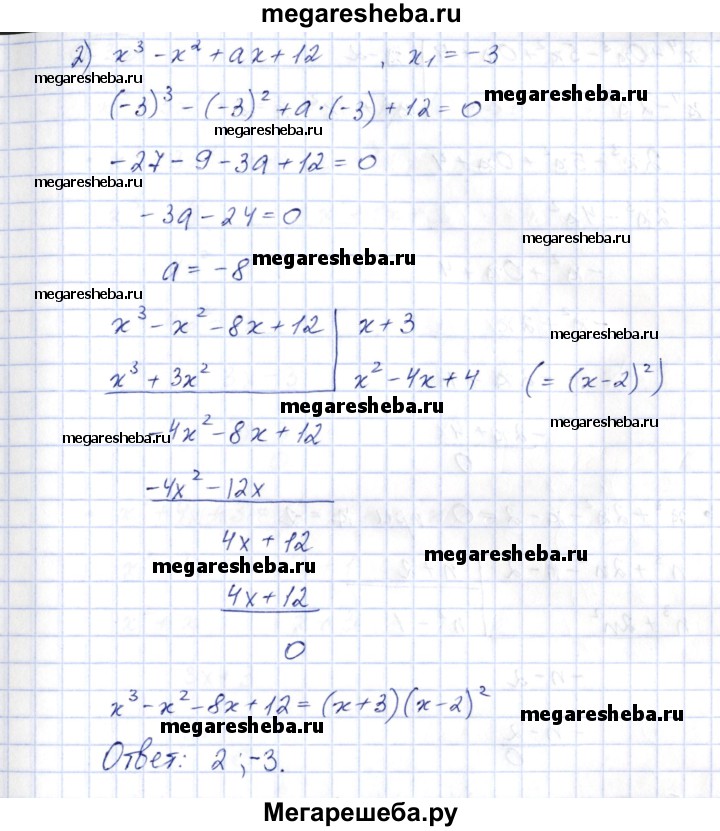 megaresheba.ru
2) x³ - x² + ax + 12 , x₁ = -3
megaresheba.ru
(-3)³ - (-3)² + a·(-3) + 12 = 0 megaresheba.ru
megaresheba.ru
-27 - 9 - 3a + 12 = 0
megaresheba.ru
-3a - 24 = 0
megaresheba.ru
a = -8 megaresheba.ru
megaresheba.ru
x³ - x² - 8x + 12 | x + 3
megaresheba.ru
x³ + 3x² | x² - 4x + 4 (= (x-2)²)
megaresheba.ru
megaresheba.ru
megaresheba.ru
-4x² - 8x + 12
-4x² - 12x
4x + 12
megaresheba.ru megaresheba.ru
4x + 12
0
x³ - x² - 8x + 12 = (x+3)(x-2)²
megaresheba.ru megaresheba.ru
Ответ: 2 ; -3.
Мегарешеба.ру